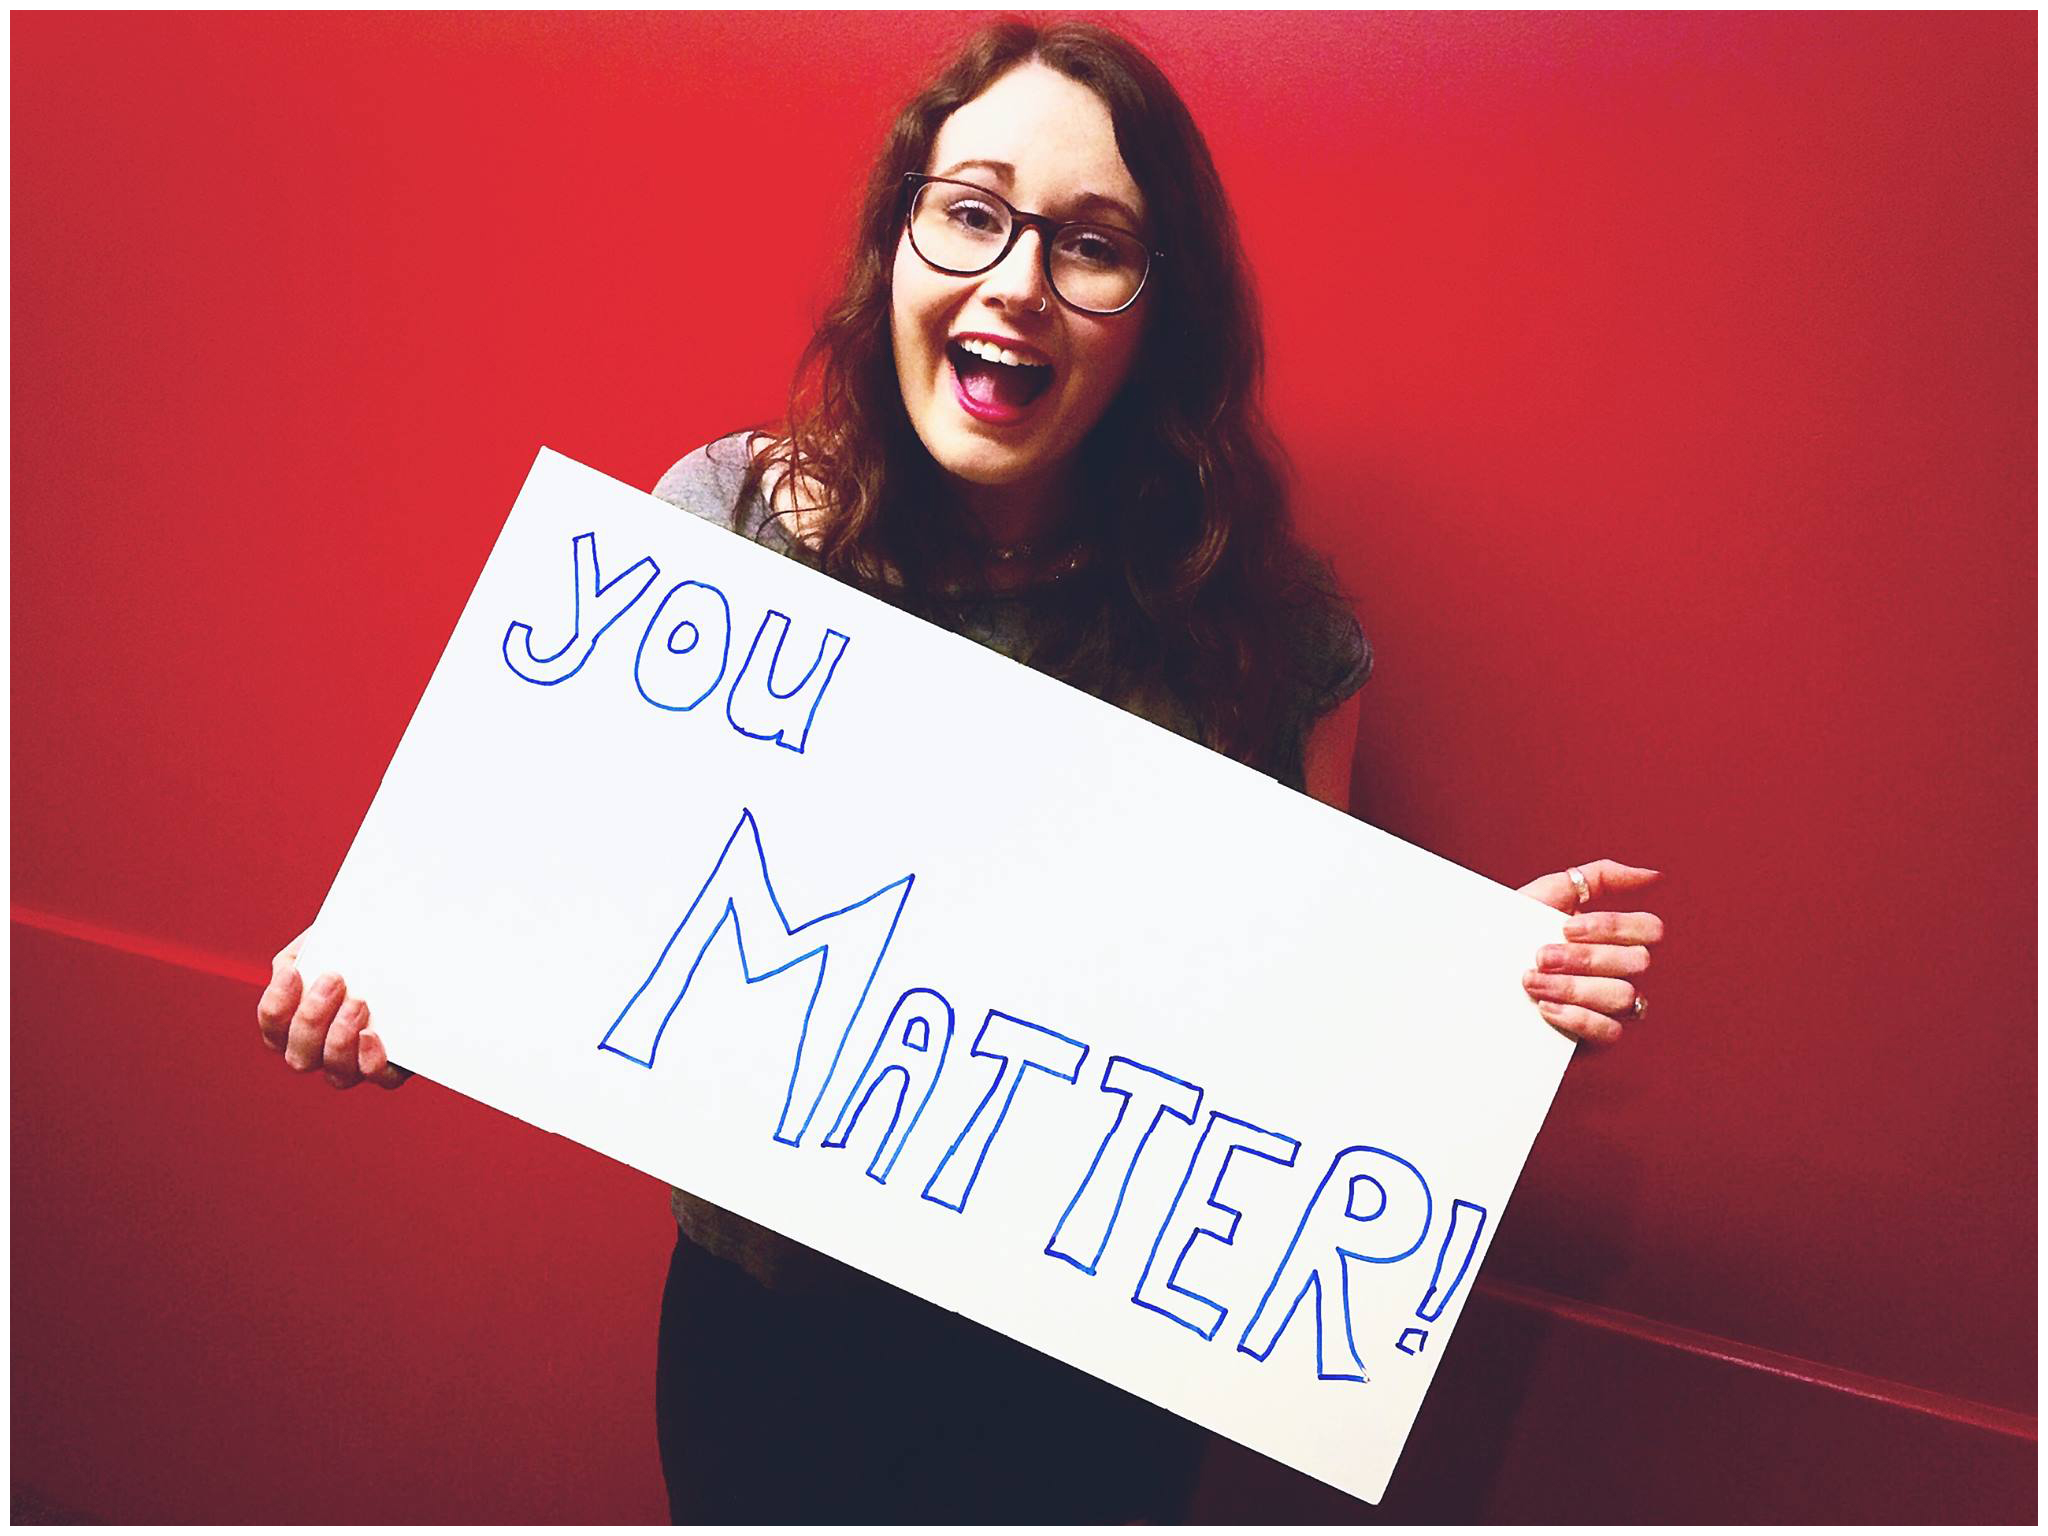 you
MATTER!